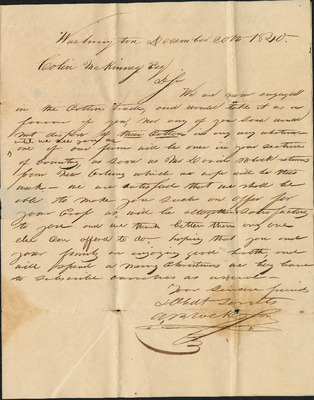 Washington December 20th 1840.
Colin McKinney Esq
Dr Sir
We are now engaged
in the Cotton trade and would take it as a
favour if you, nor any of your Sons would
not dispose of their Cotton in any way whatever
till we see you, as
one of our firm will be in your section
of country, as soon as Mr returns
from New Orleans which we hope will be this
week — we are satisfied that we shall be
able to make you such an offer for
your Crop as will be satisfactory
to you and we think better than any one
else Can afford to do — hoping that you and
your family are enjoying good health, and
will spend a merry Christmas we beg leave
to subscribe ourselves as usual
Your Sincere friends